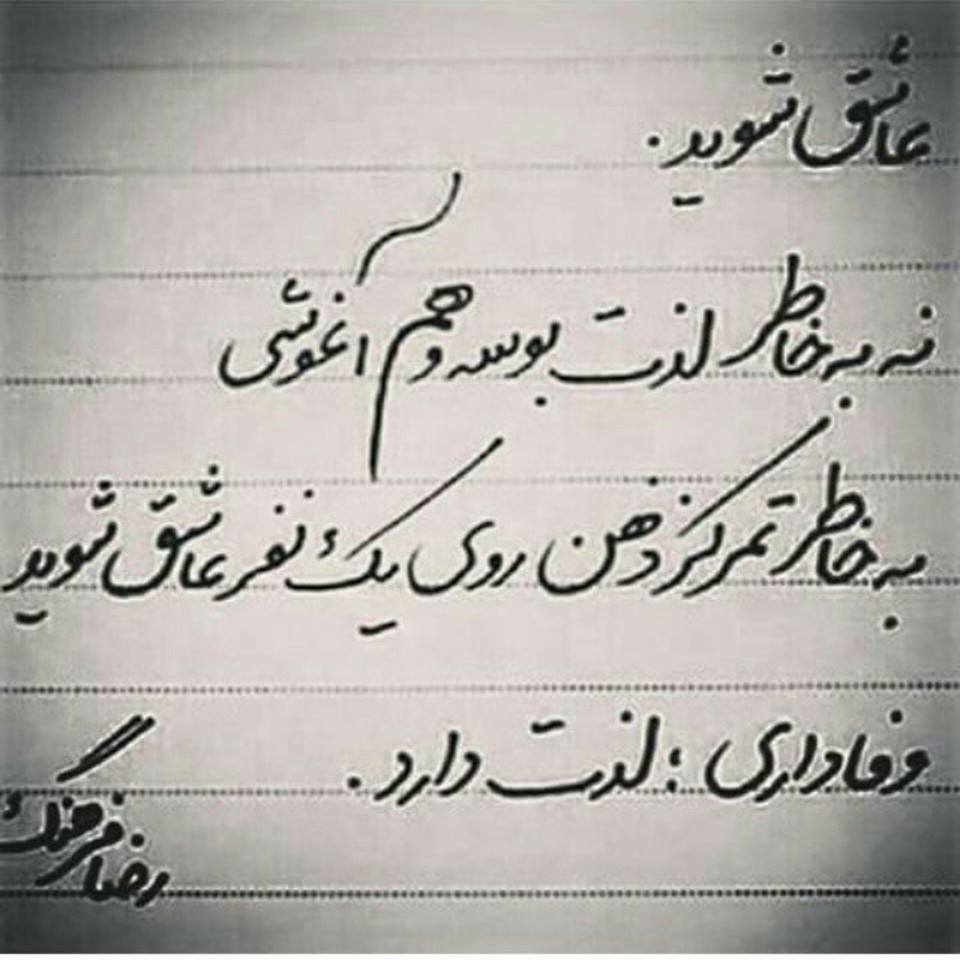 عاشق شوید.
نه به خاطر لذت بوسه و هم آغوشی
به خاطر تمرکز ذهن روی یک نفر عاشق شوید
وفاداری؛ لذت دارد.
رضا فرهنگ